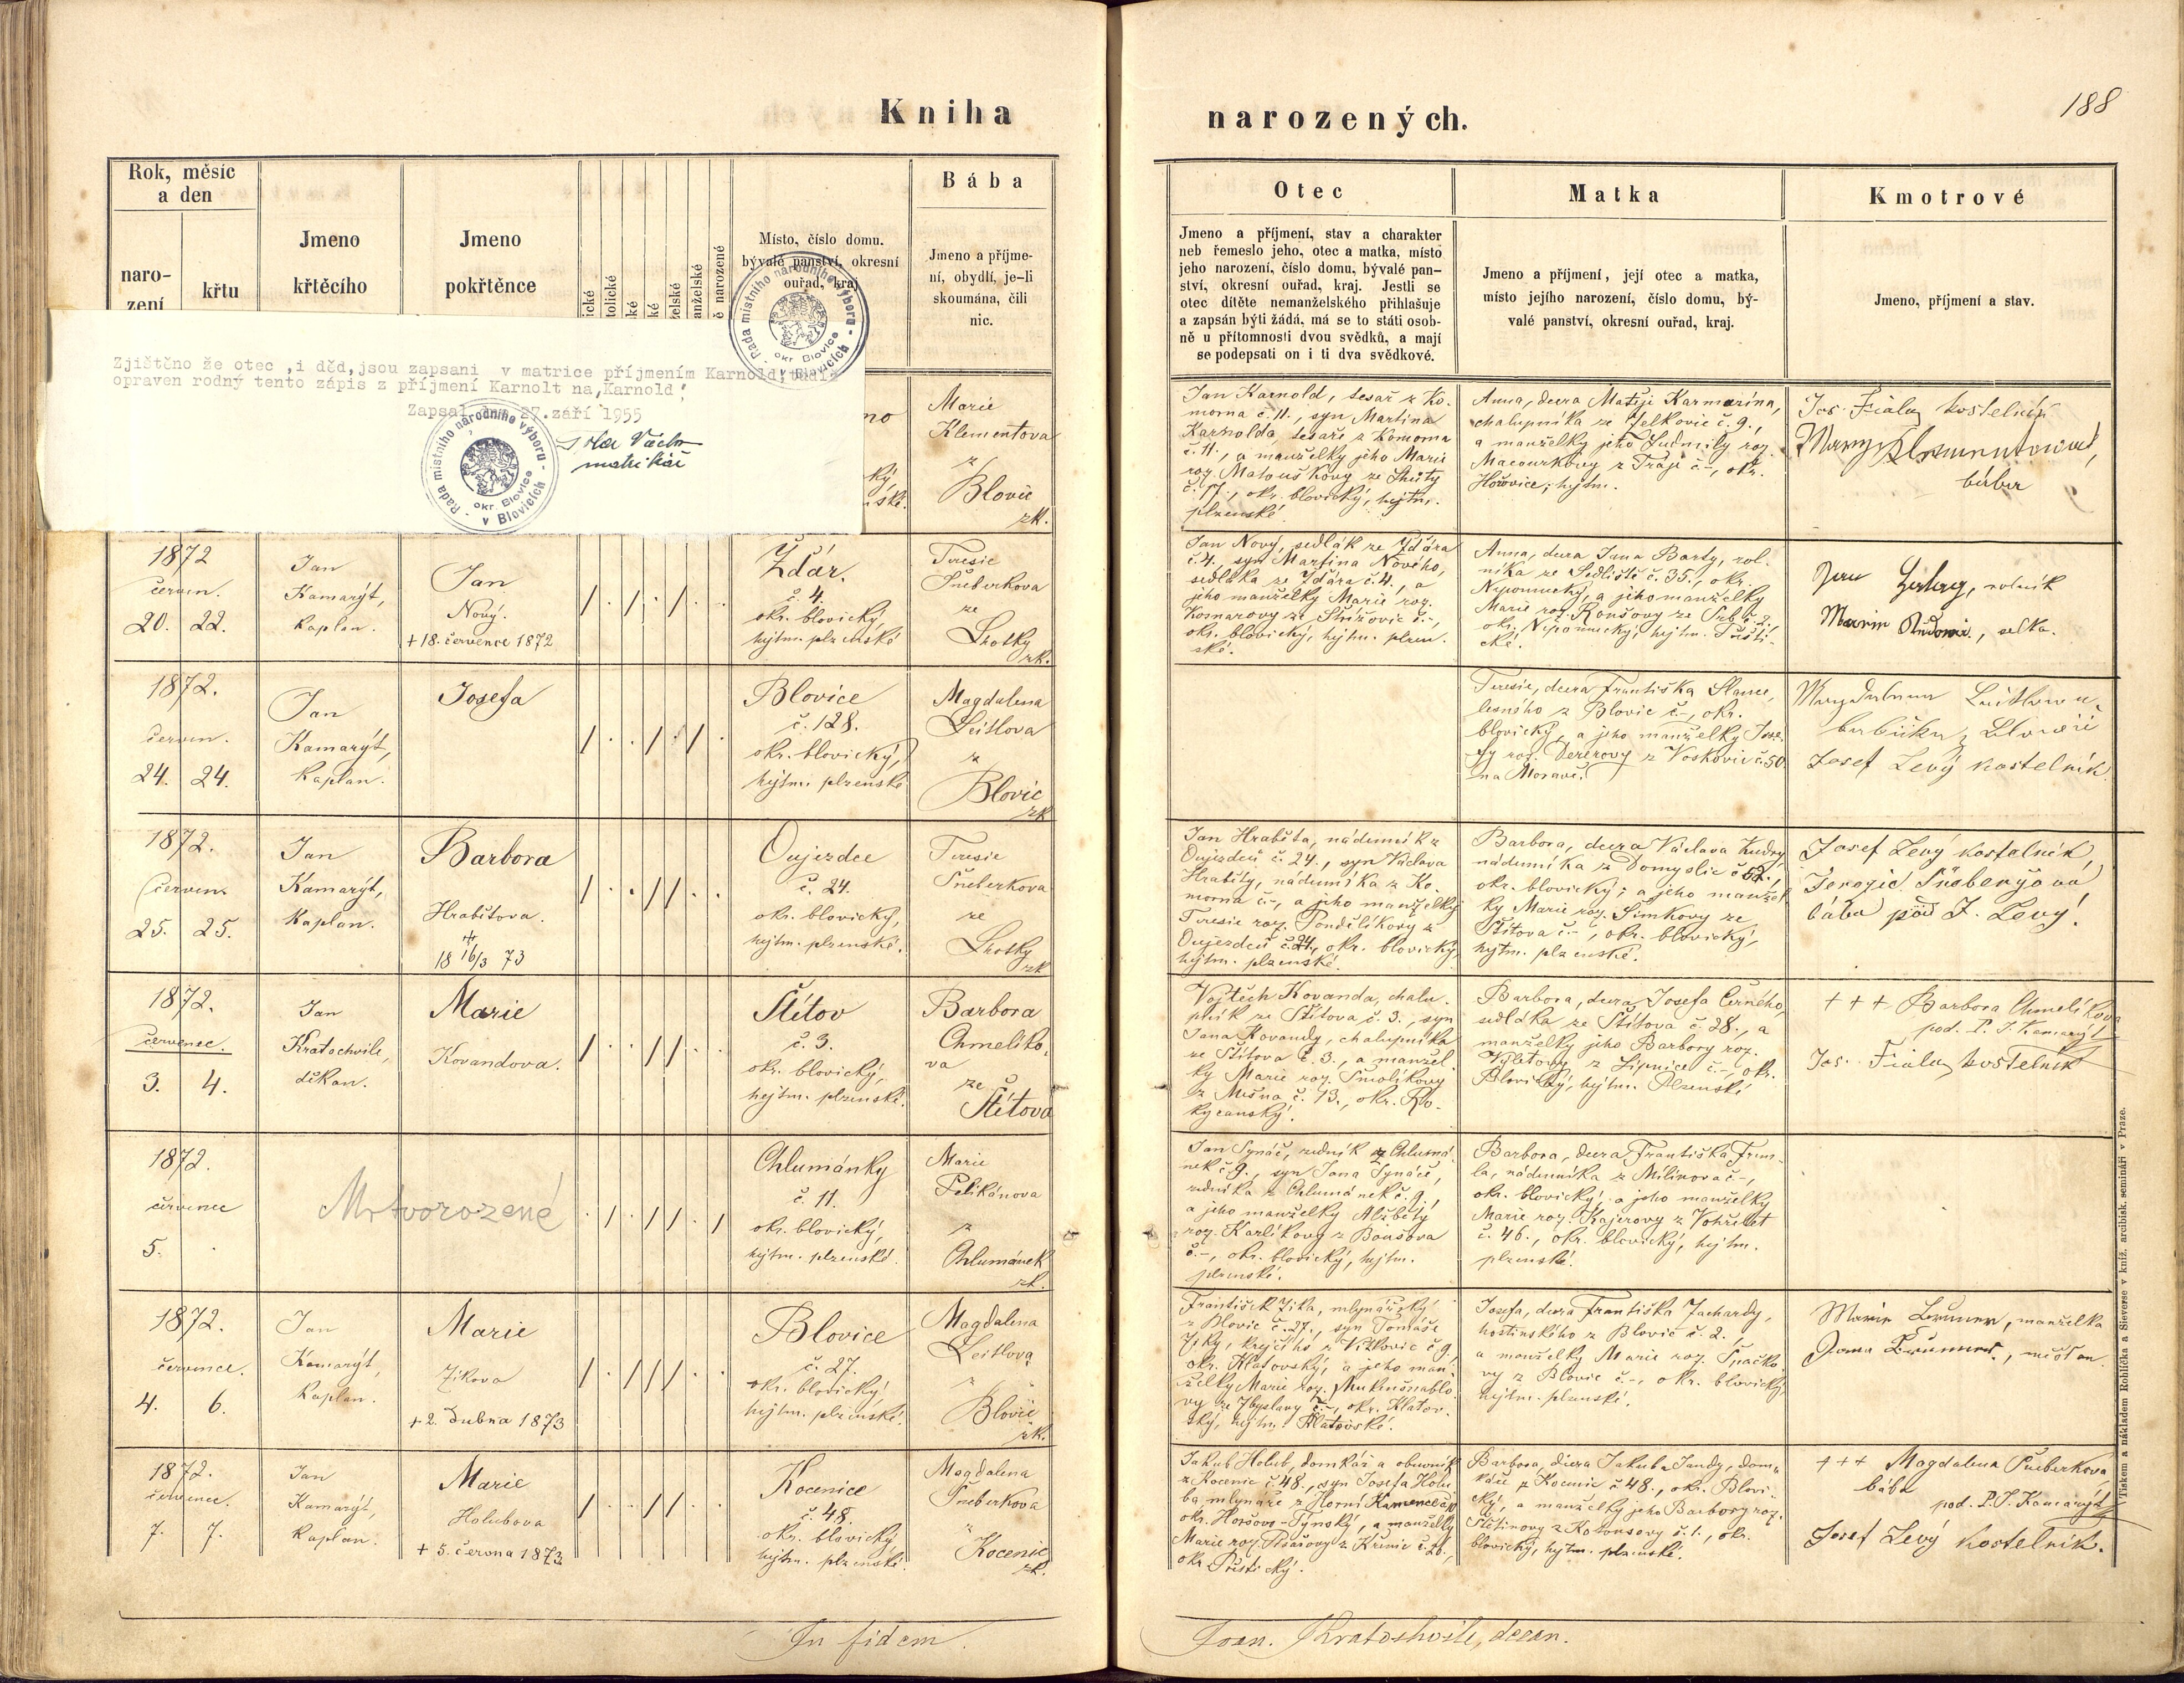 Kniha
narozených.
188
Rok, měsíc
a den
naro-
zení
křtu
Jmeno
křtěcího
Jmeno
pokřtěnce
Místo, číslo domu.
bývalé panství, okresní
ouřad, kraj
Bába
Jmeno a příjme-
ní, obydlí, je-li
skoumána, čili
nic.
Otec
Jmeno a příjmení, stav a charakter
neb řemeslo jeho, otec a matka, místo
jeho narození, číslo domu, bývalé pan-
ství, okresní ouřad, kraj. Jestli se
otec dítěte nemanželského přihlašuje
a zapsán býti žádá, má se to státi osob-
ně u přítomnosti dvou svědků, a mají
se podepsati on i ti dva svědkové.
Matka
Jmeno a příjmení, její otec a matka,
místo jejího narození, číslo domu, bý-
valé panství, okresní ouřad, kraj.
Kmotrové
Jmeno, příjmení a stav.
Zjištěno že otec ,i děd,jsou zapsani v matrice příjmením Karnold,
opraven rodný tento zápis z příjmení Karnolt na,Karnold
Zapsal 27.září 1955
matrikář
Rada místního národního výboru
okr Blovice
v Blovicích
Marie
Klementova
z
Blovic
zk.
Jan Karnold, tesař z Ko-
morna č. 11., syn Martina
Karnolda, tesaře z Komorna
č. 11., a manželky jeho Marie
roz. Matouškovy ze Lhůty
č. 17., okr. blovický, hejtm.
plzenské.
Anna, dcera Matěje Karmazína,
chalupníka ze Želkovic č. 9.,
a manželky jeho Ludmily roz.
Macourkovy z Tráje č. –, okr.
Hořovice, hejtm.
Jos. Fiala, kostelník
bába
1872
červen.
20. 22.
Jan
Kamarýt,
kaplan.
Jan
Nový.
+ 18. července 1872
Ždár.
č. 4.
okr. blovický,
hejtm. plzenské
Teresie
Šneberkova
ze
Lhotky
zk.
Jan Nový, sedlák ze Ždára
č. 4. syn Martina Nového,
sedláka ze Ždára č. 4., a
jeho manželky Marie roz.
Komarovy ze Střížovic č. –,
okr. blovický, hejtm. plzen-
ské.
Anna, dcera Jana Barty, rol-
níka ze Sedliště č. 35., okr.
Nepomucký, a jeho manželky
Marie roz. Roušovy ze Srb č. 2.,
okr. Nepomucký, hejtm. Přešti-
cké.
rolník
selka.
1872.
červen.
24. 24.
Jan
Kamarýt,
kaplan.
Josefa
Blovice
č. 128.
okr. blovický,
hejtm. plzenské
Magdalena
Leitlova
z
Blovic
zk
Teresie, dcera Františka Slance,
lesního z Blovic č. –, okr.
blovický, a jeho manželky Jose-
fy roz. Dererovy z Voskovic č. 50
na Moravě.
Josef Levý kostelník.
1872.
červen.
25. 25.
Jan
Kamarýt,
kaplan.
Barbora
Hrabětova.
18 16/3 73
Oujezdec
č. 24.
okr. blovický,
hejtm. plzenské.
Teresie
Šneberkova
ze
Lhotky
zk
Jan Hraběta, nádenník z
Oujezdců č. 24., syn Václava
Hraběty, nádeníka z Ko-
morna č. –, a jeho manželky
Teresie roz. Pondělíkovy z
Oujezdců č. 24., okr. blovický,
hejtm. plzenské.
Barbora, dcera Václava Kudry,
nádenníka z Domyslic č. 52.,
okr. blovický, a jeho manžel-
ky Marie roz. Šimkovy ze
Štítova č. –, okr. blovický,
hejtm. plzenské.
Josef Levý kostelník,
bába pod J. Levý.
1872.
červenec.
3. 4.
Jan
Kratochvile,
děkan.
Marie
Kovandova.
Štítov
č. 3.
okr. blovický,
hejtm. plzenské.
Barbora
Chmelíko-
va
ze
Štítova
Vojtěch Kovanda, chalu-
pník ze Štítova č. 3., syn
Jana Kovandy, chalupníka
ze Štítova č. 3., a manžel-
ky Marie roz. Smolíkovy
z Mešna č. 13., okr. Ro-
kycanský.
Barbora, dcera Josefa Černého,
sedláka ze Štítova č. 28., a
manželky jeho Barbory roz.
Výletovy z Lipnice č. –, okr.
Blovický, hejtm. Plzenské
+++ Barbora Chmelíkova
pod. P. J. Kamarýt
Jos. Fiala, kostelník
1872.
červenec
5.
Mrtvorozené
Chlumánky
č. 11.
okr. blovický,
hejtm. plzenské.
Marie
Pelikánova
z
Chlumánek
zk.
Jan Synáč, rudník z Chlumá-
nek č. 9., syn Jana Synáče,
rudníka z Chlumánek č. 9.,
a jeho manželky Alžběty
roz. Karlíkovy z Boušova
č. –, okr. blovický, hejtm.
plzenské.
Barbora, dcera Františka Frem-
la, nádenníka z Milinova č. –,
okr. blovický, a jeho manželky
Marie roz. Kajerovy z Vohřelet
č. 46., okr. blovický, hejtm.
plzenské.
1872.
července.
4. 6.
Jan
Kamarýt,
kaplan.
Marie
Zikova
+ 2. dubna 1873
Blovice
č. 27.
okr. blovický
hejtm. plzenské.
Magdalena
Leitlova
z
Blovic
zk.
František Zika, mlynářský
z Blovic č. 27., syn Tomáše
Ziky, krejčího z Vížkovic č. 9,
okr. Klatovský, a jeho man-
želky Marie roz.
vy ze Zbyslavy č. –, okr. Klatov-
ský, hejtm. Klatovské.
Josefa, dcera Františka Zachardy,
hostinského z Blovic č. 2.
a manželky Marie roz. Špačko-
vy z Blovic č. –, okr. blovický,
hejtm. plzenské.
manželka
měšťan.
1872.
července.
7. 7.
Jan
Kamarýt,
kaplan.
Marie
Holubova
+ 5. června 1873
Kocenice
č. 48.
okr. blovický
hejtm. plzenské.
Magdalena
Šneberkova
z
Kocenic
zk.
Jakub Holub, domkář a obuvník
z Kocenic č. 48., syn Josefa Holu-
ba, mlynáře z Horní Kamenice
okr. Horšovo-Týnský, a manželky
Marie roz. Písařovy z Křenic č. 26.,
okr. Přeštický.
Barbora, dcera Jakuba Jandy, dom-
káře z Kocenic č. 48., okr. Blovi-
cký, a manželky jeho Barbory roz.
Štětinovy z Kotousovy č. 1., okr.
blovický, hejtm. plzenské.
+++ Magdalena Šneberkova
bába
pod. P. J. Kamarýt
Josef Levý kostelník.
In fidem.
Joan. Kratochvile, decan.
Tiskem a nákladem Rohlíčka a Sieverse v kníž. arcibisk. semináři v Praze.